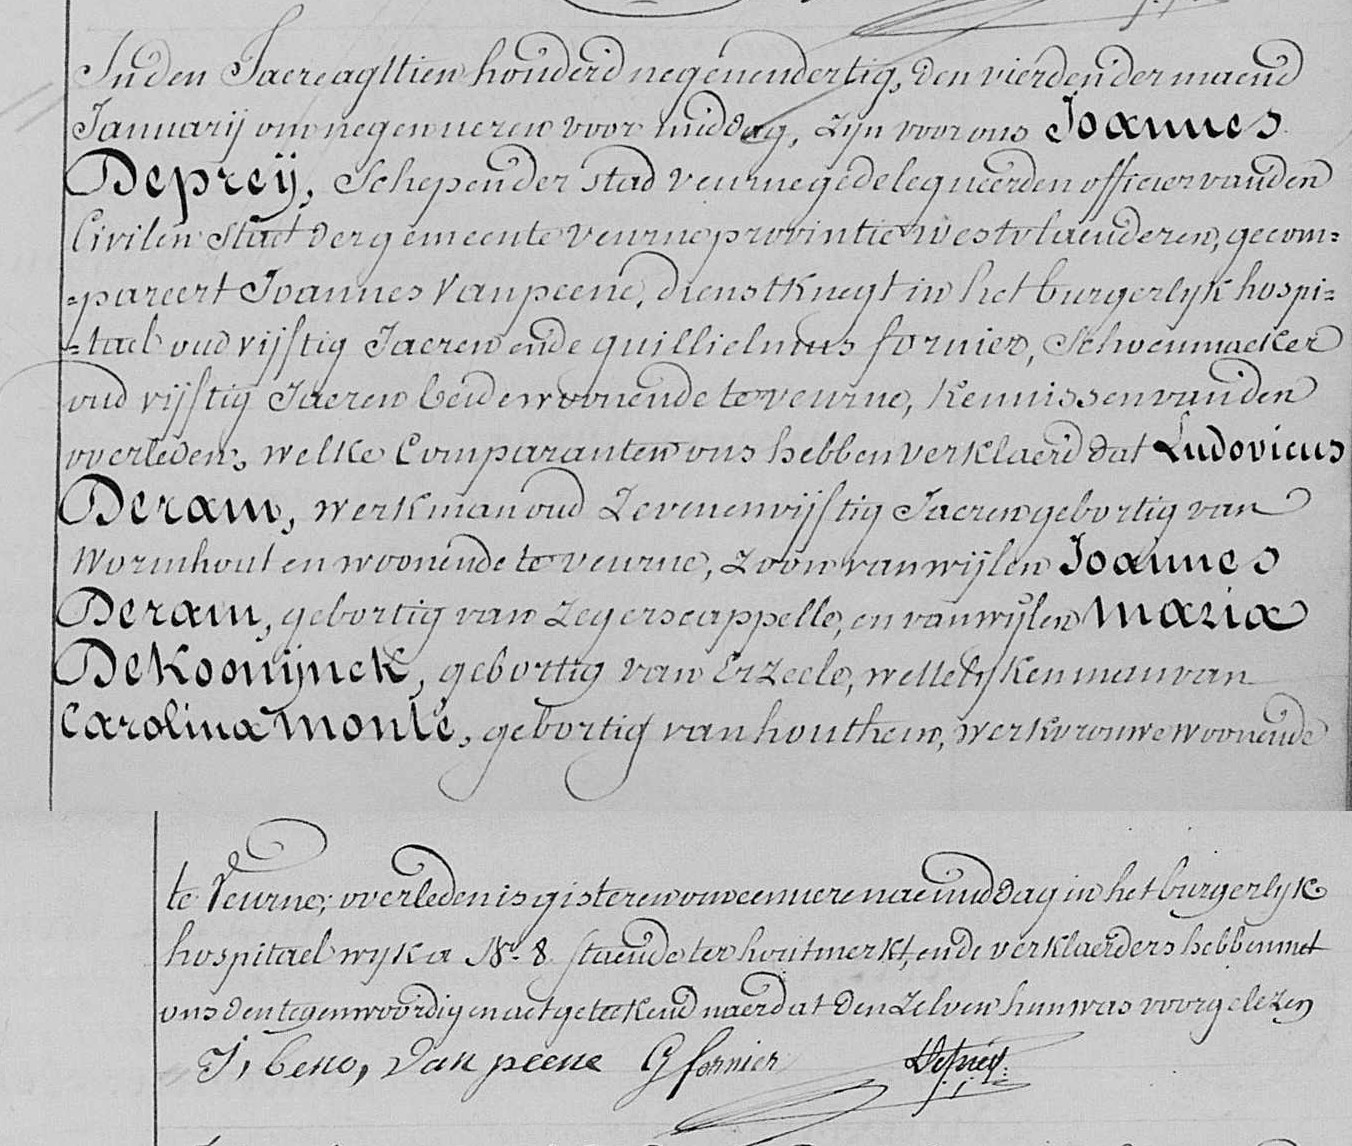 In den Jaere agttien honderd negenendertig, den vierden der maend
Januarij om negen ueren voor middag, zijn voor ons Joannes
Depreij, Schepen der stad veurne gedelegueerden officier van den
Civilen Staet der gemeente Veurne provintie Westvlaenderen, gecom=
=pareert Joannes Vanpeene, dienstknegt in het burgerlijk hospi=
=tael oud vijftig Jaeren ende guillielmus fornier, Schoenmaeker
oud vijftig Jaeren beide woonende te veurne, Kennissen van den
overleden, welke Comparanten ons hebben verklaerd dat Ludovicus
Deram, werkman oud Zevenenvijftig Jaeren gebortig van
Wormhout en woonende te veurne, Zoon van wijlen Joannes
Deram, gebortig van Zegerscappelle, en van wijlen Maria
Dekoonijnck, gebortig van Erzeele, wettelijken man van
Carolina Monté, gebortig van houthem, werkvrouwe woonende
te Veurne; overleden is gisteren om een uere naemiddag in het burgerlijk
hospitael wijk a Nr. 8 staende ter houtmerkt, ende verklaerders hebben met
ons den tegenwoordigen act geteekend naerdat den zelven hun was voorgelezen
J, beno, Van peene G fornier Deprey